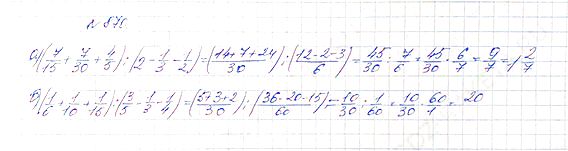 № 876
а) (7/15 + 7/30 + 4/5) : (2 - 1/3 - 1/2) = (14+7+24)/30 : (12-2-3)/6 = 45/30 : 7/6 = 45/30 · 6/7 = 9/7 = 1 2/7
в) (1/6 + 1/10 + 1/15) : (3/5 - 1/3 - 1/4) = (5+3+2)/30 : (36-20-15)/60 = 10/30 : 1/60 = 10/30 · 60/1 = 20